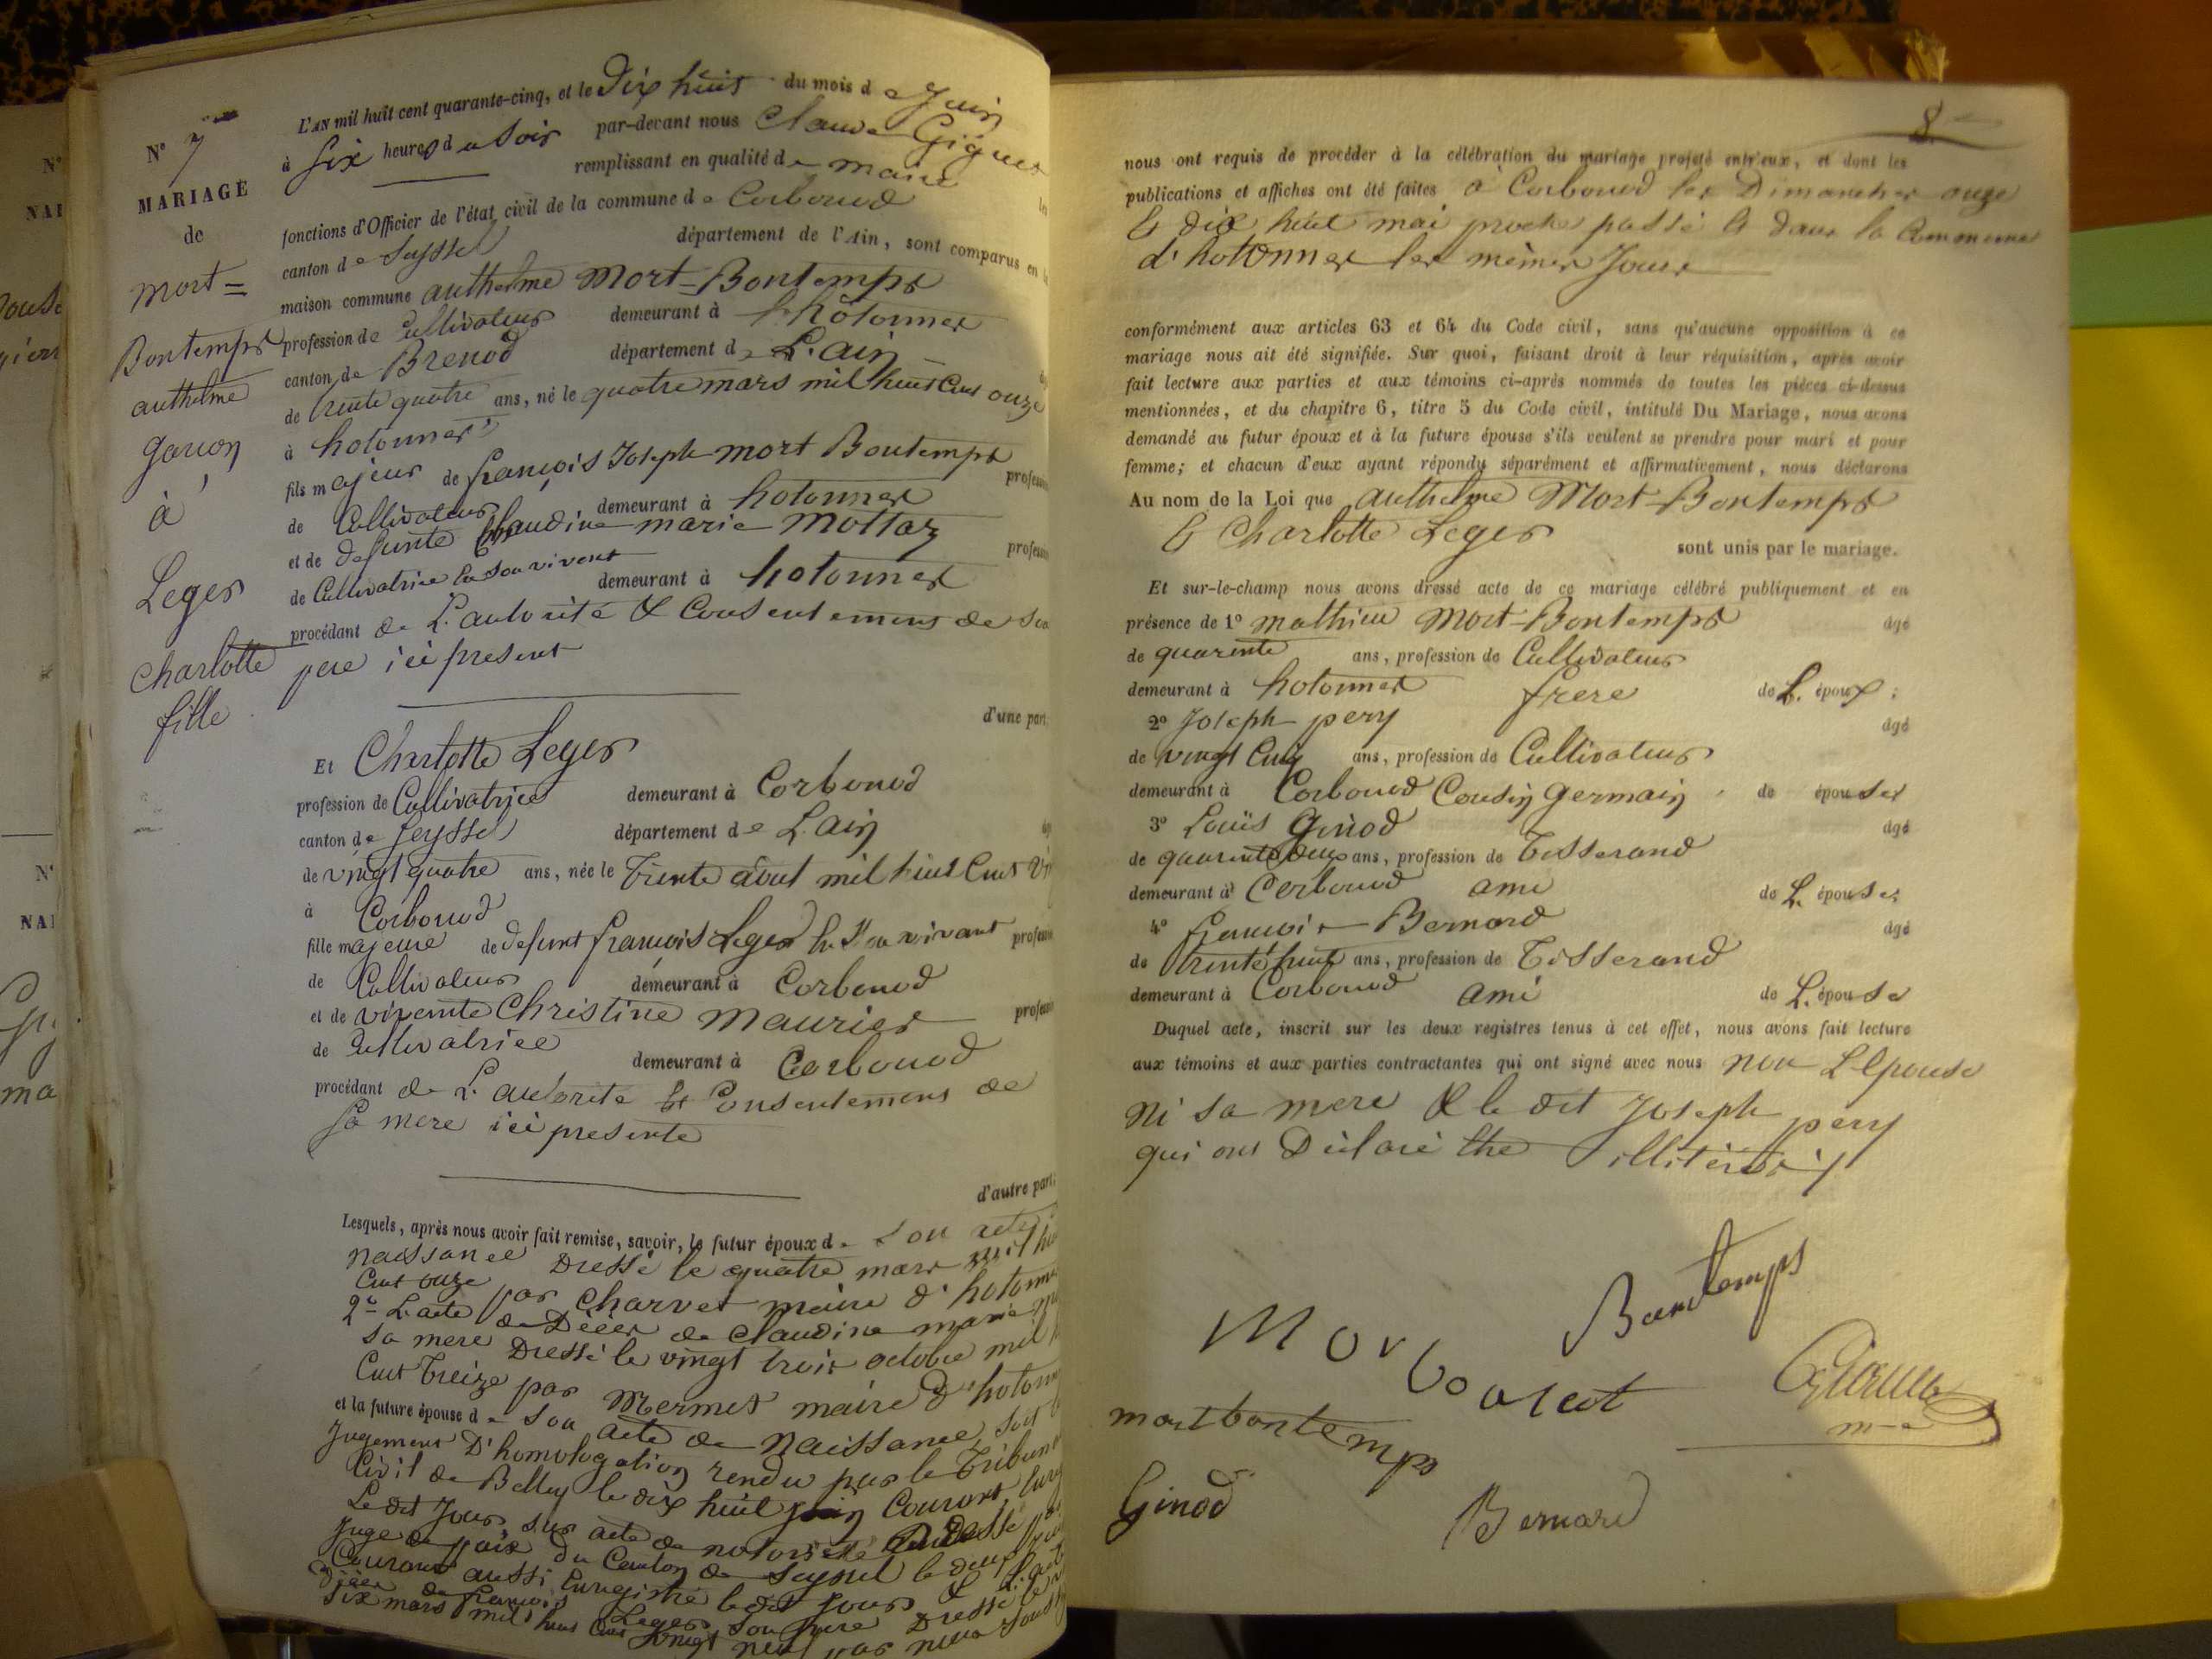 N° 7
MARIAGE
de
mort=
Bontemps
anthelme
garcon
à
Leger
Charlotte
fille
L'AN mil huit cent quarante-cinq, et le dix huit du mois de Juin
à six heures du soir par-devant nous Claude Giguet
remplissant en qualité de maire les
fonctions d'Officier de l'état civil de la commune de Corbonod
canton de Seyssel département de l'Ain, sont comparus en la
maison commune anthelme Mort-Bontemps
profession de Cultivateur demeurant à hôtonnes
canton de Brenod département de L'ain
de trente quatre ans, né le quatre mars mil huit Cent onze
à hotonnes
fils majeur de françois Joseph mort Bontemps profession
de Cultivateur demeurant à hotonnes
et de defunte Claudine marie Mottaz profession
de Cultivatrice En son vivent demeurant à hotonnes
procédant de L'autorité & Consentement de son
pere ici present
d'une part.
Et Charlotte Leger
profession de Cultivatrice demeurant à Corbonod
canton de Seyssel département de L'ain
de vingt quatre ans, née le trente aout mil huit Cent
à Corbonod
fille majeure de defunt françois Leger En son vivant profession
de Cultivateur demeurant à Corbonod
et de vivente Christine Maurier profession
de Cultivatrice demeurant à Corbonod
procédant de L'autorité Et Consentement de
sa mere ici presente
d'autre part.
Lesquels, après nous avoir fait remise, savoir, le futur époux de son acte
naissance Dressé le quatre mars mil
Cent onze par Charvet maire d'hotonnes
2° L'acte de Décès de Claudine marie
sa mere Dressé le vingt trois octobre mil
Cent treize par Mermet maire d'hotonnes
et la future épouse de son acte de Naissance, soit
Jugement D'homologation rendu par le Tribunal
Civil de Belley le dix huit juin Courant
Le dit Jour, sur acte de notorieté Dressé
Juge de paix du Canton de Seyssel le deux
Courant aussi Enregistré le dit Jour & L'acte
Décès de françois Leger son pere Dressé le
six mars mil huit Cent vingt neuf par nous
8
nous ont requis de procéder à la célébration du mariage projeté entr'eux, et dont les
publications et affiches ont été faites à Corbonod les Dimanches onze
& dix huit mai proche passé & dans la Commune
d'hotonnes les mêmes Jours
conformément aux articles 63 et 64 du Code civil, sans qu'aucune opposition à ce
mariage nous ait été signifiée. Sur quoi, faisant droit à leur réquisition, après avoir
fait lecture aux parties et aux témoins ci-après nommés de toutes les pièces ci-dessus
mentionnées, et du chapitre 6, titre 5 du Code civil, intitulé Du Mariage, nous avons
demandé au futur époux et à la future épouse s'ils veulent se prendre pour mari et pour
femme; et chacun d'eux ayant répondu séparément et affirmativement, nous déclarons
Au nom de la Loi que anthelme Mort-Bontemps
& Charlotte Leger sont unis par le mariage.
Et sur-le-champ nous avons dressé acte de ce mariage célébré publiquement et en
présence de 1° mathieu Mort-Bontemps âgé
de quarente ans, profession de Cultivateur
demeurant à hotonnes frere de L'époux;
2° Joseph pery âgé
de vingt Cinq ans, profession de Cultivateur
demeurant à Corbonod Cousin germain de épouse
3° Louis Ginod âgé
de quarente deux ans, profession de Tisserand
demeurant à Corbonod ami de L'épouse;
4° françois Bernard âgé
de trente huit ans, profession de Tisserand
demeurant à Corbonod ami de L'épouse
Duquel acte, inscrit sur les deux registres tenus à cet effet, nous avons fait lecture
aux témoins et aux parties contractantes qui ont signé avec nous non L'Epouse
Ni sa mere & le dit Joseph pery
qui ont Déclaré être illitérés
Bontemps
mortbontemps
Ginod
Bernard